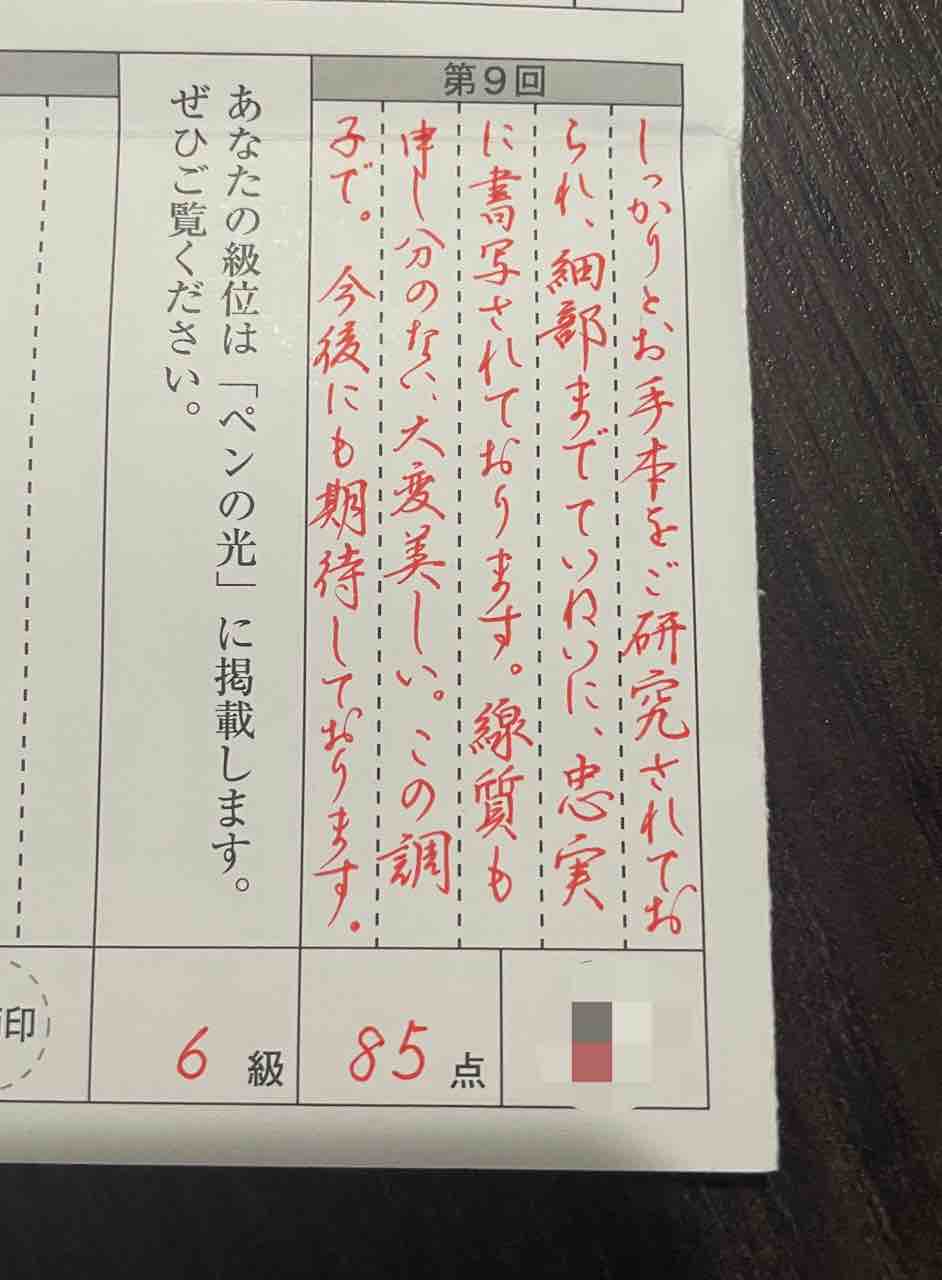 第9回
しっかりとお手本をご研究されてお
られ、細部までていねいに、忠実
に書写されております。線質も
申し分のない、大変美しい。この調
子で。今後にも期待しております。
85点
あなたの級位は「ペンの光」に掲載します。
ぜひご覧ください。
6級
印